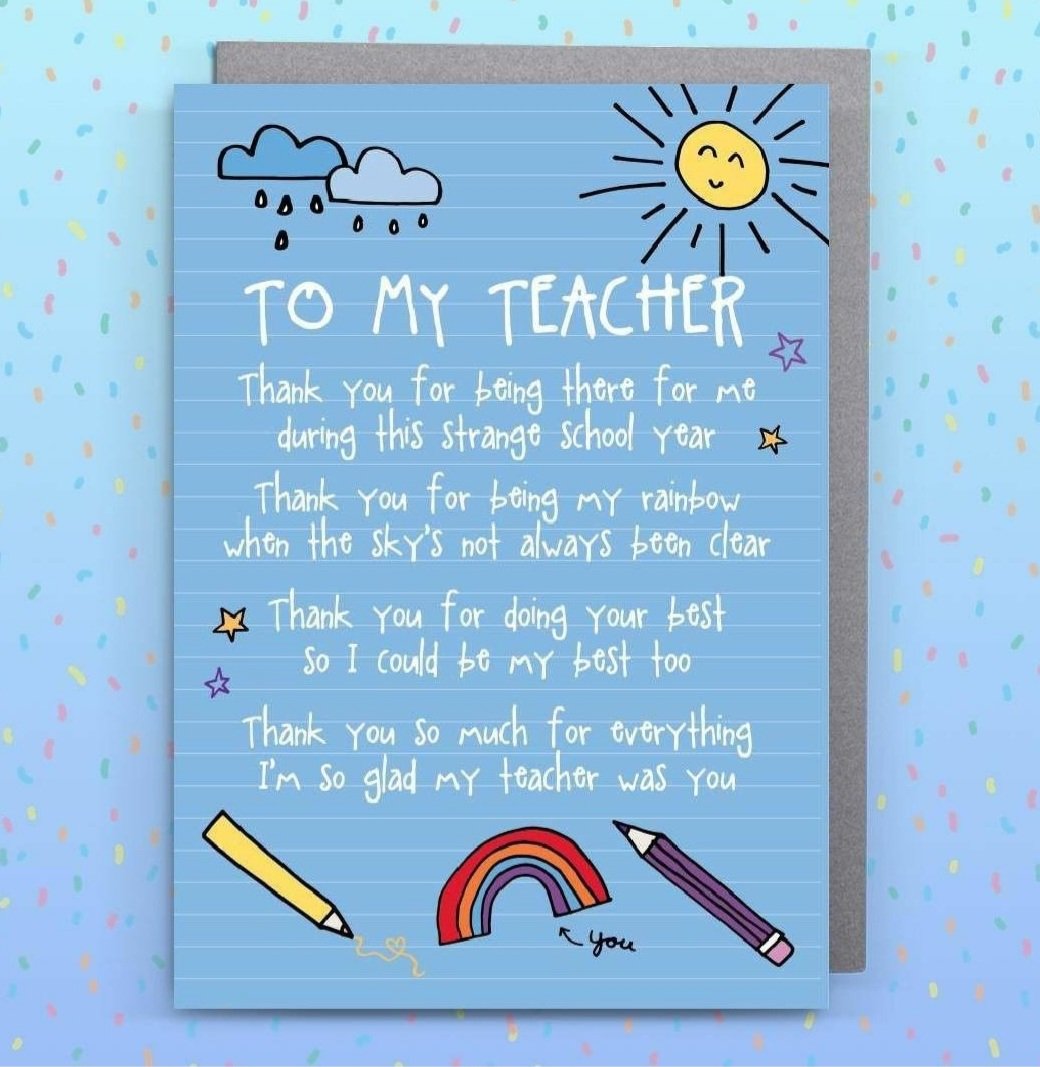 TO MY TEACHER
Thank you for being there for me
during this strange school year
Thank you for being my rainbow
when the sky's not always been clear
Thank you for doing your best
so I could be my best too
Thank you so much for everything
I'm so glad my teacher was you
you